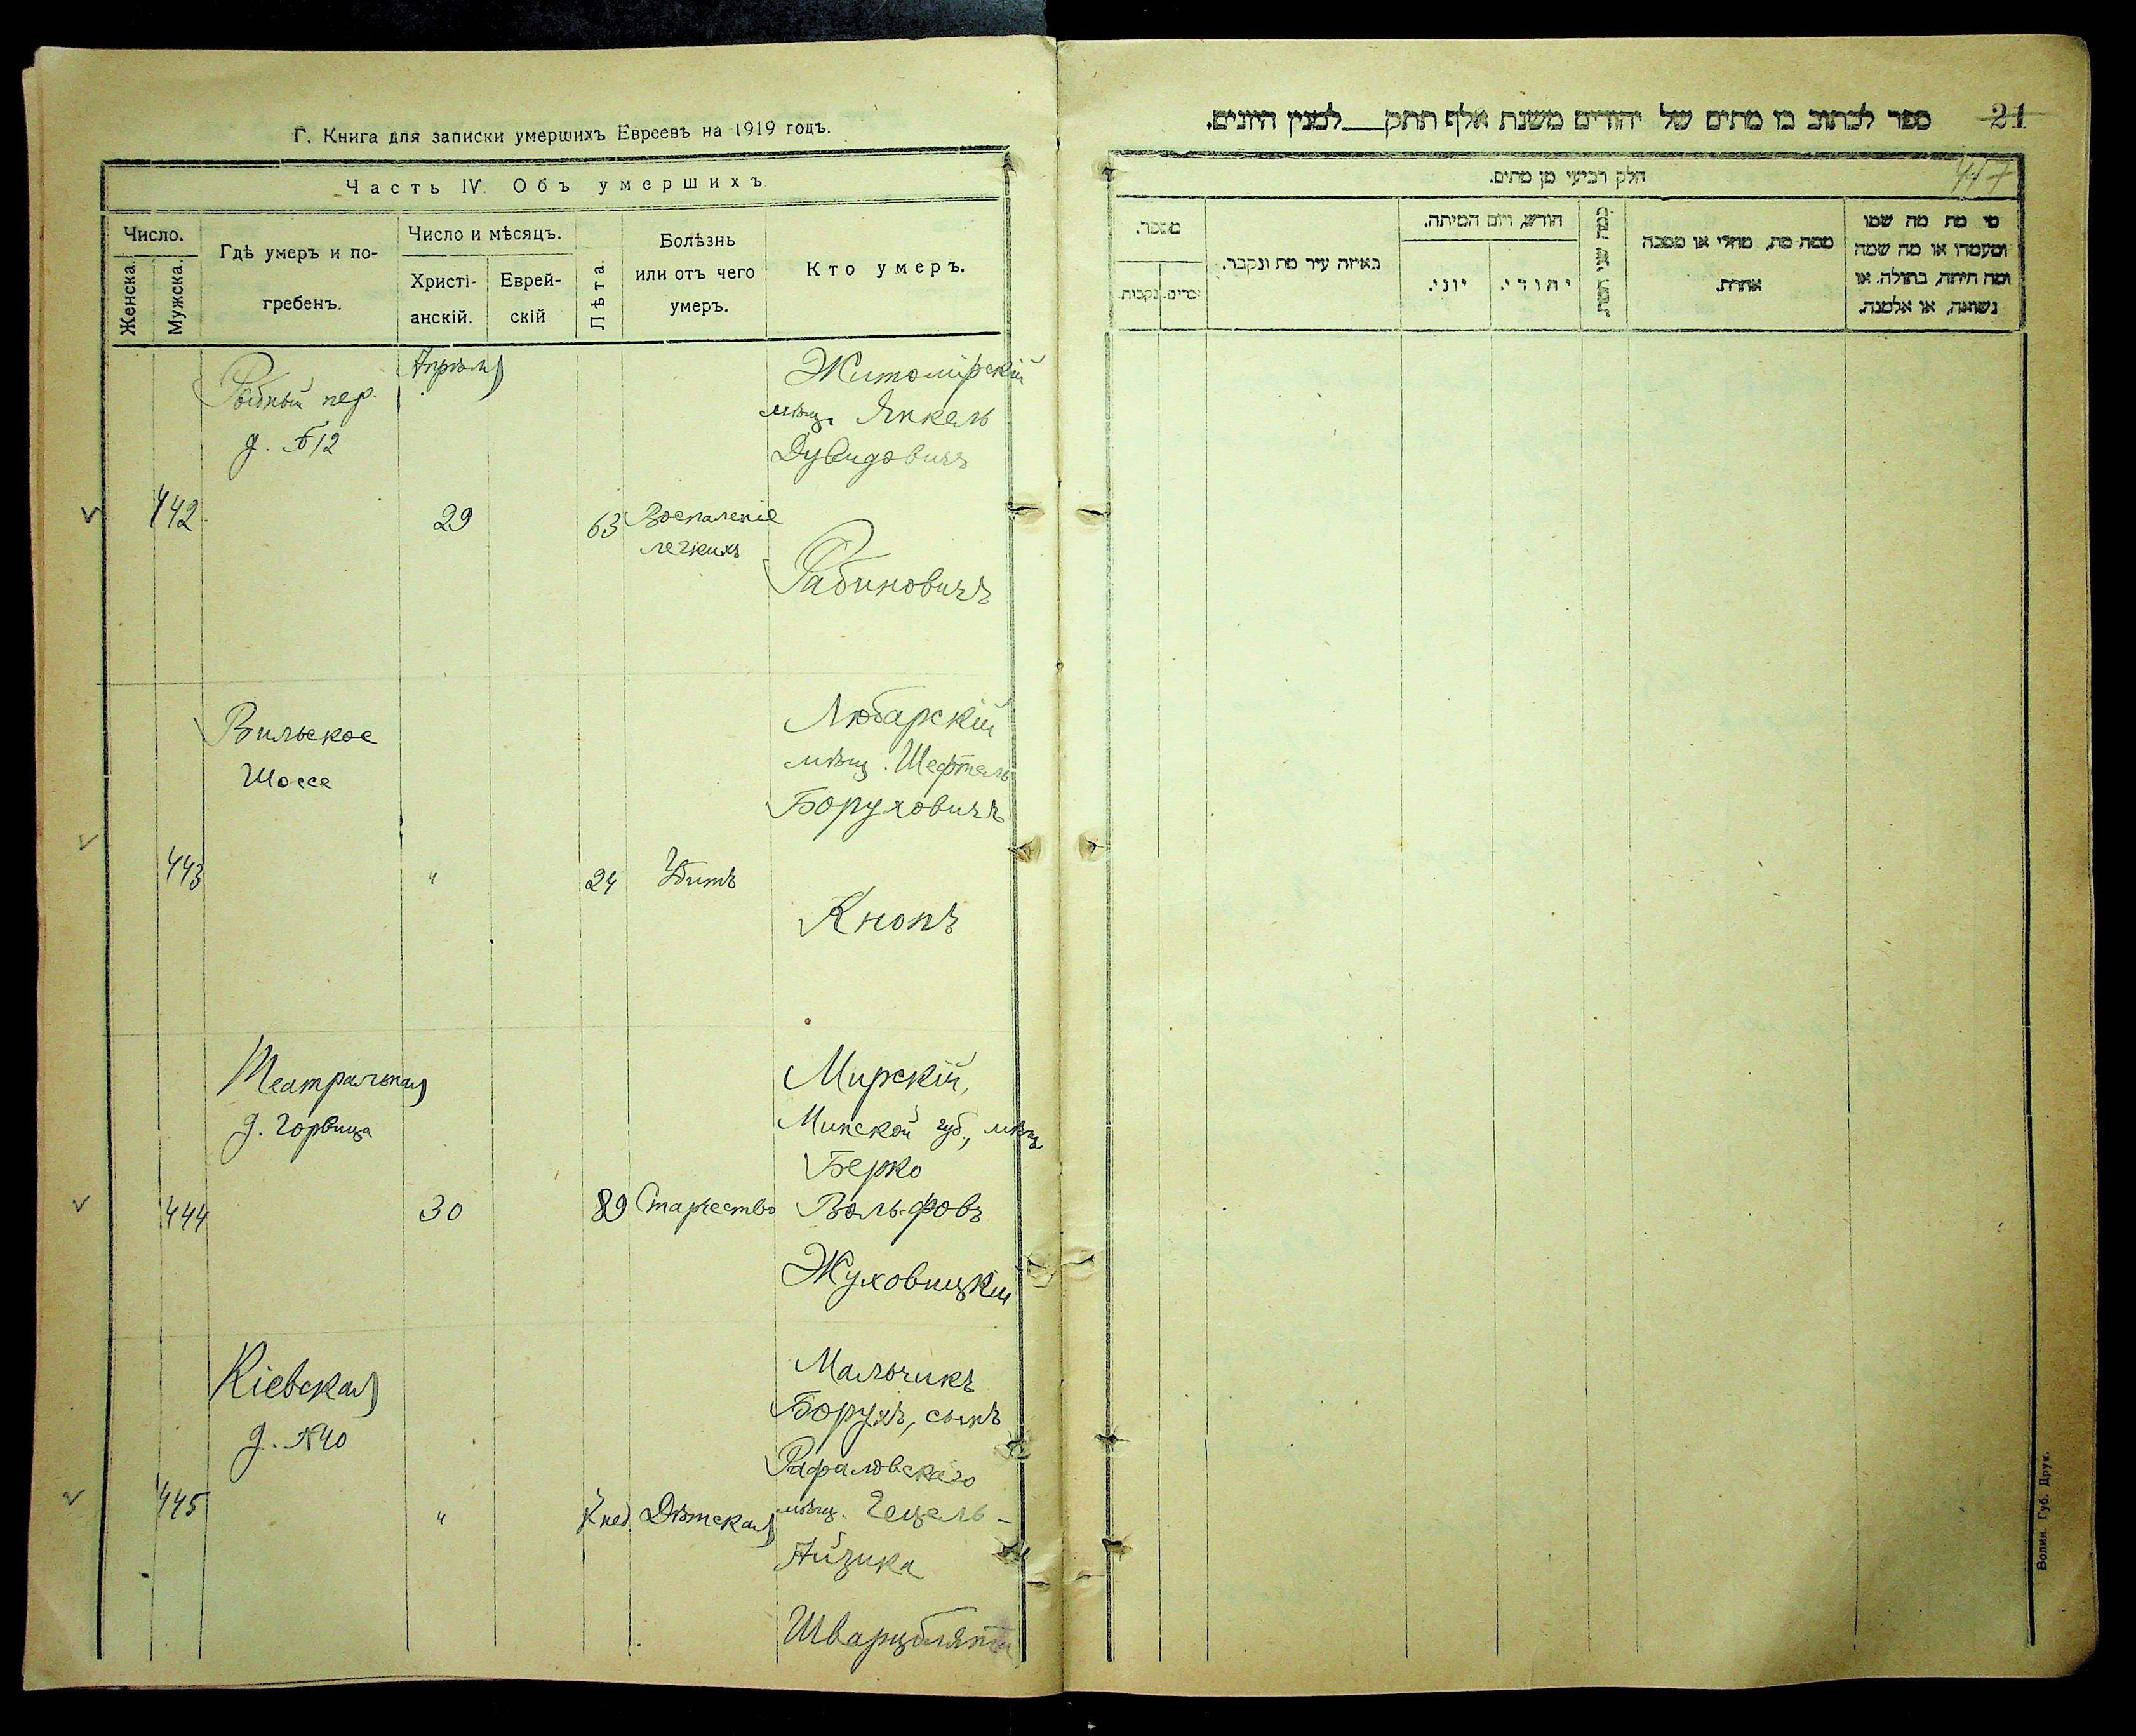 Г. Книга для записки умершихъ Евреевъ на 1919 годъ.
Часть IV. Объ умершихъ
Число.
Женска.
Мужска.
Гдѣ умеръ и по-
гребенъ.
Число и мѣсяцъ.
Христі-
анскій.
Еврей-
скій
Лѣта.
Болѣзнь
или отъ чего
умеръ.
Кто умеръ.
Рыбный пер.
д. №12
Апрѣля
442
29
63
Воспаленіе
легкихъ
Житомірскій
мѣщ. Янкель
Дувидовичъ
Рабиновичъ
Вильское
Шоссе
443
"
24
Убитъ
Любарскій
мѣщ. Шефтель
Боруховичъ
Кнопъ
Театральная
д. Горвица
444
30
89
Старчество
Мирскій,
Минской губ., мѣщ.
Берко
Вольфовъ
Жуховицкій
Кіевская
д. №40
445
"
нед.
Дѣтская
Мальчикъ
Борухъ, сынъ
Рафаловскаго
мѣщ. Гецель-
Айзика
ספר לכתוב בו מתים של יהודים משנת אלף תתק___למנין היונים.
21
חלק רביעי מן מתים.
מספר.
זכרים.
נקבות.
באיזה עיר מת ונקבר.
חודש, ויום המיתה.
יוני.
יהודי.
ממה מת, מחלי או מסבה
אחרת.
מי מת מה שמו
ומעמדו או מה שמה
ומה היתה, בתולה, או
נשואה, או אלמנה.
Волин. Губ. Друк.